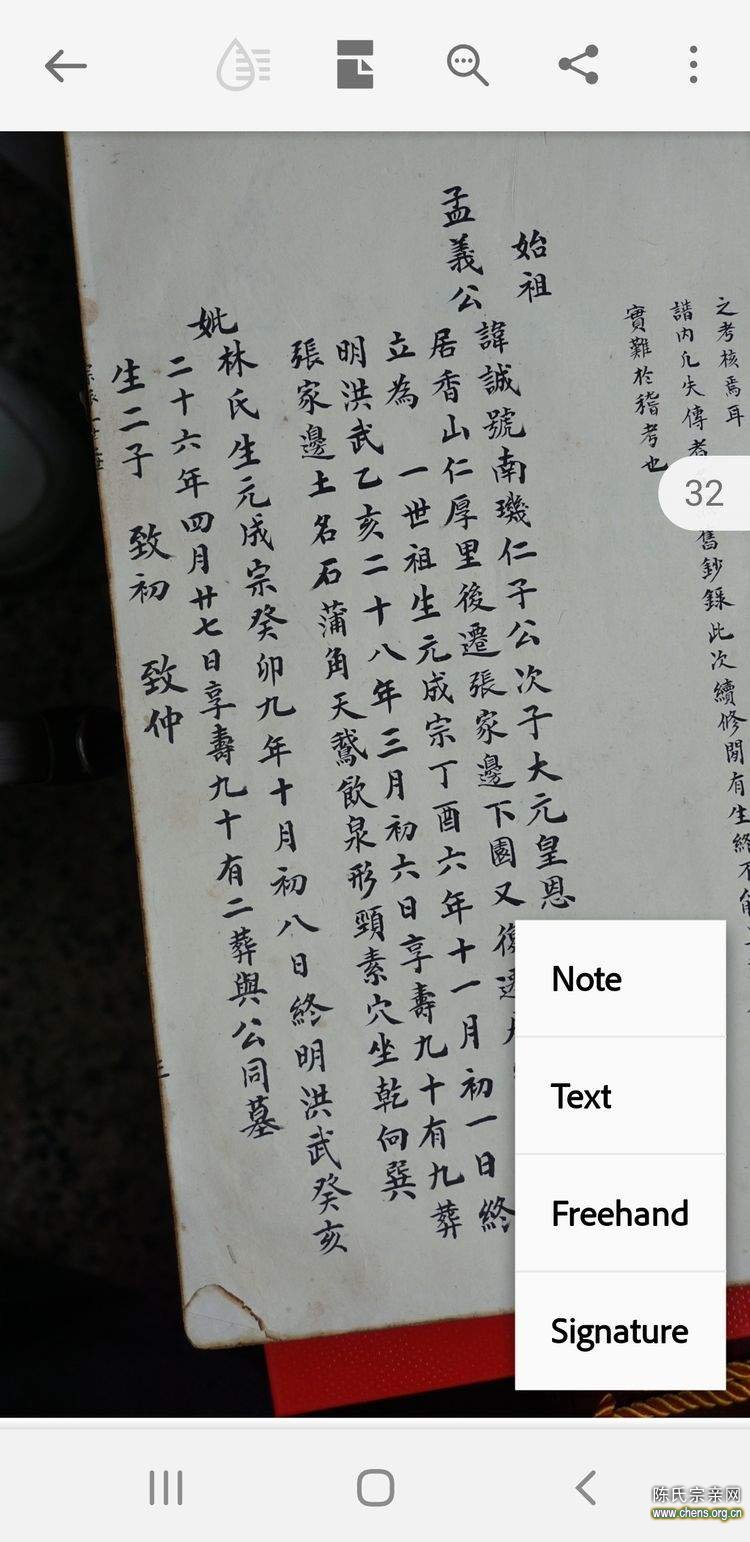 32
之考核焉耳
譜內凡失傳者
舊鈔錄此次續修間有生終不
實難於稽考也
始祖
孟義公
諱誠號南璣仁子公次子大元皇恩
居香山仁厚里後遷張家邊下園又復遷
立為一世祖生元成宗丁酉六年十一月初一日終
明洪武乙亥二十八年三月初六日享壽九十有九葬
張家邊土名石蒲角天鵝飲泉形頸素穴坐乾向巽
妣林氏生元成宗癸卯九年十月初八日終明洪武癸亥
二十六年四月廿七日享壽九十有二葬與公同墓
生二子 致初 致仲
Note
Text
Freehand
Signature
陈氏宗亲网
www.chens.org.cn